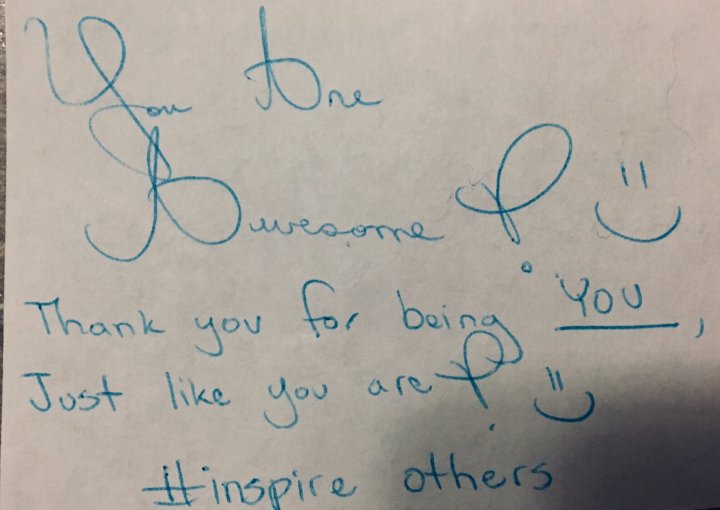 You Are
Awesome! :)
Thank you for being YOU,
Just like you are! :)
#inspire others